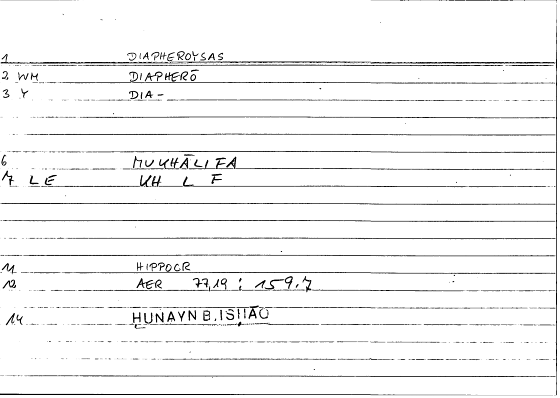 1 DIAPHEROYSAS
2 WH DIAPHERŌ
3 Y DIA-
6 MUKHĀLIFA
7 LE KH L F
11 HIPPOCR
12 AER 77,19 : 159.7
14 ḤUNAYN B. ISḤĀQ